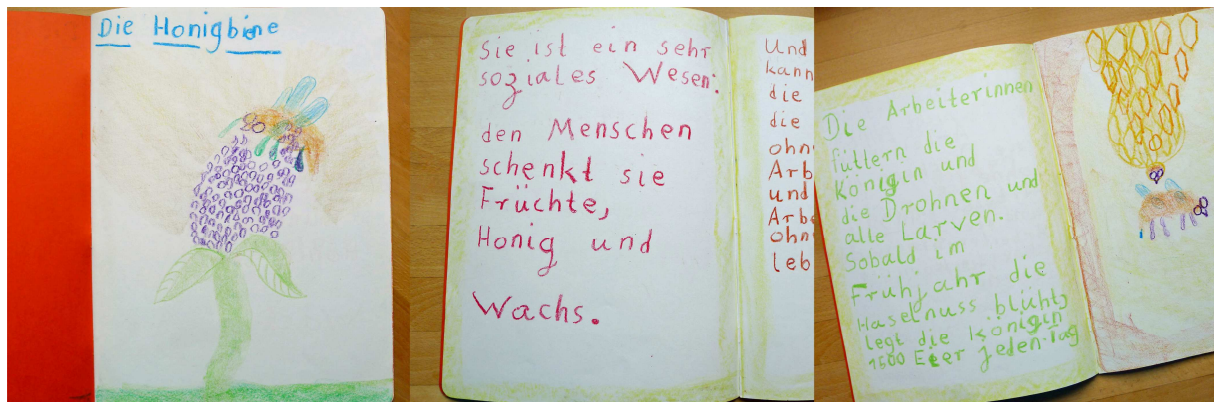 Die Honigbiene
Sie ist ein sehr
soziales Wesen:
den Menschen
schenkt sie
Früchte,
Honig und
Wachs.
Und
kann
die
die
ohn
Arb
und
Arbe
ohn
leb
Die Arbeiterinnen
füttern die
Königin und
die Drohnen und
alle Larven.
Sobald im
Frühjahr die
Haselnuss blüht,
legt die Königin
1500 Eier jeden Tag